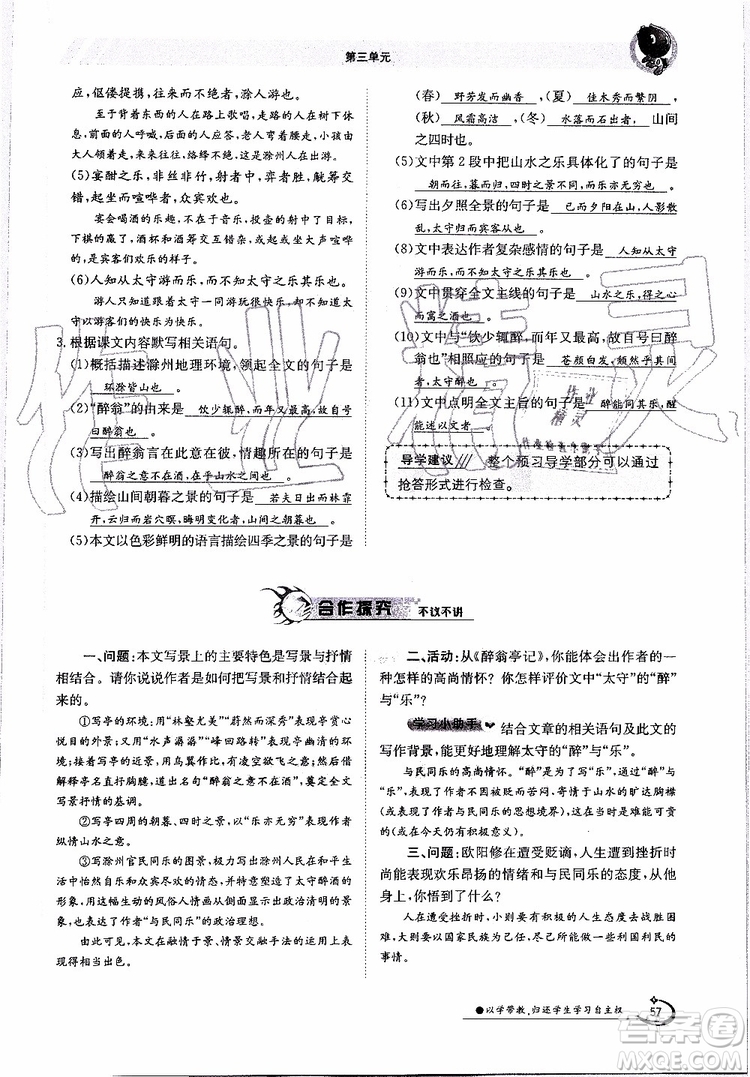 第三单元
应，伛偻提携，往来而不绝者，滁人游也。
至于背着东西的人在路上歌唱，走路的人在树下休
息，前面的人呼喊，后面的人应答，老人弯着腰走，小孩由
大人领着走，来来往往，络绎不绝的，这是滁州人在出游。
(5)宴酣之乐，非丝非竹，射者中，弈者胜，觥筹交
错，起坐而喧哗者，众宾欢也。
宴会喝酒的乐趣，不在于音乐，投壶的射中了目标，
下棋的赢了，酒杯和酒筹交互错杂，或起或坐大声喧哗
的，是宾客们欢乐的样子。
(6)人知从太守游而乐，而不知太守之乐其乐也。
游人只知道跟着太守游玩的快乐，却不知道太守以
游人的快乐为快乐。
3. 根据课文内容默写相关语句。
(1)概括描述滁州地理环境，领起全文的句子是
环滁皆山也。
(2)“醉翁”的由来是 饮少辄醉，而年又最高，故自号
曰醉翁也。
(3)写出醉翁言在此意在彼，情趣所在的句子是
醉翁之意不在酒，在乎山水之间也。
(4)描绘山间朝暮之景的句子是 若夫日出而林霏
开，云归而岩穴暝，晦明变化者，山间之朝暮也。
(5)本文以色彩鲜明的语言描绘四季之景的句子是
(春) 野芳发而幽香，(夏) 佳木秀而繁阴，
(秋) 风霜高洁，(冬) 水落而石出者，山间
之四时也。
(5)文中第2段中把山水之乐具体化了的句子是
朝而往，暮而归，四时之景不同，而乐亦无穷也。
(6)写出夕照全景的句子是 已而夕阳在山，人影散
乱，太守归而宾客从也。
(8)文中表达作者复杂感情的句子是 人知从太守
游而乐，而不知太守之乐其乐也。
(9)文中贯穿全文主线的句子是 山水之乐，得之心
而寓之酒也。
(10)文中与“饮少辄醉，而年又最高，故自号曰醉
翁也”相照应的句子是 苍颜白发，颓然乎其间
者，太守醉也。
(11)文中点明全文主旨的句子是 醉能同其乐，醒
能述以文者。
导学建议 整个预习导学部分可以通过
抢答形式进行检查。
合作探究 不议不讲
一、问题：本文写景上的主要特色是写景与抒情
相结合。请你说说作者是如何把写景和抒情结合起
来的。
①写亭的环境：用“林壑尤美”“蔚然而深秀”表现亭赏心
悦目的外景；又用“水声潺潺”“峰回路转”表现亭幽清的环
境；接着写亭的近景，用鸟翼作比，有凌空欲飞之意，然后借
解释亭名直抒胸臆，道出名句“醉翁之意不在酒”，奠定全文
写景抒情的基调。
②写亭四周的朝暮、四时之景，以“乐亦无穷”表现作者
纵情山水之意。
③写滁州官民同乐的图景，极力突出滁人在和平生活
下恬适欢乐和众宾尽欢的情态，着意刻画了太守醉酒的形
象，用这幅生动的风俗人情画从侧面显示出政治清明的景
象，也寄寓着“与民同乐”的政治理想。
由此可见，本文在融情于景、情景交融手法的运用上表
现得相当出色。
二、活动：从《醉翁亭记》，你能体会出作者的一
种怎样的高尚情怀？你怎样评价文中“太守”的“醉”
与“乐”？
学习小助手 结合文章的相关语句及此文的
写作背景，能更好地理解太守的“醉”与“乐”。
与民同乐的高尚情怀。“醉”与“乐”是统一的，“醉”与
“乐”，不是颓废和苦闷，寄情于山水的旷达胸襟
（或作者与民同乐的思想境界），在当时具有积极意义
（或在今天仍有积极意义）。
三、问题：欧阳修在遭受贬谪，人生遭到挫折时
尚能表现欢乐昂扬的情绪和与民同乐的态度，从中
你悟到了什么？
人在遭受挫折时，小则要有积极的人生态度去战胜困
难，大则要以国家民族为念，尽己所能多做一些利国利民的
事情。
●以学带教，归还学生学习自主权
57
答案圈
MXQE.COM